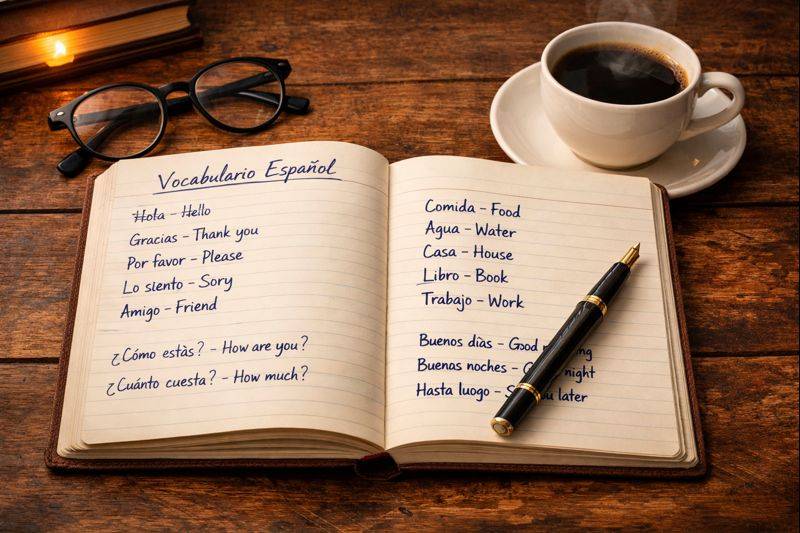 Vocabulario Español
Hola – Hello
Gracias – Thank you
Por favor – Please
Lo siento – Sory
Amigo – Friend
¿Cómo estàs? – How are you?
¿Cuánto cuesta? – How much?
Comida – Food
Agua – Water
Casa – House
Libro – Book
Trabajo – Work
Buenos dìas –
Buenas noches – night
Hasta luogo – later